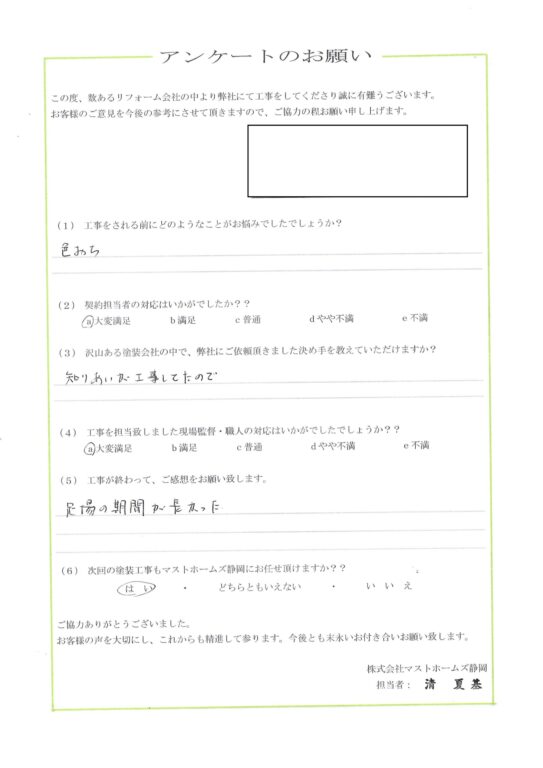 アンケートのお願い
この度、数あるリフォーム会社の中より弊社にて工事をしてくださり誠に有難うございます。
お客様のご意見を今後の参考にさせて頂きますので、ご協力の程お願い申し上げます。
(1) 工事をされる前にどのようなことがお悩みでしたでしょうか?
色おち
(2) 契約担当者の対応はいかがでしたか??
a大変満足 b満足 c普通 dやや不満 e不満
(3) 沢山ある塗装会社の中で、弊社にご依頼頂きました決め手を教えていただけますか?
知りあいが工事してたので
(4) 工事を担当致しました現場監督・職人の対応はいかがでしたでしょうか??
a大変満足 b満足 c普通 dやや不満 e不満
(5) 工事が終わって、ご感想をお願い致します。
足場の期間が長かった
(6) 次回の塗装工事もマストホームズ静岡にお任せ頂けますか??
はい ・ どちらともいえない ・ いいえ
ご協力ありがとうございました。
お客様の声を大切にし、これからも精進して参ります。今後とも末永いお付き合いお願い致します。
株式会社マストホームズ静岡
担当者: 清 夏基